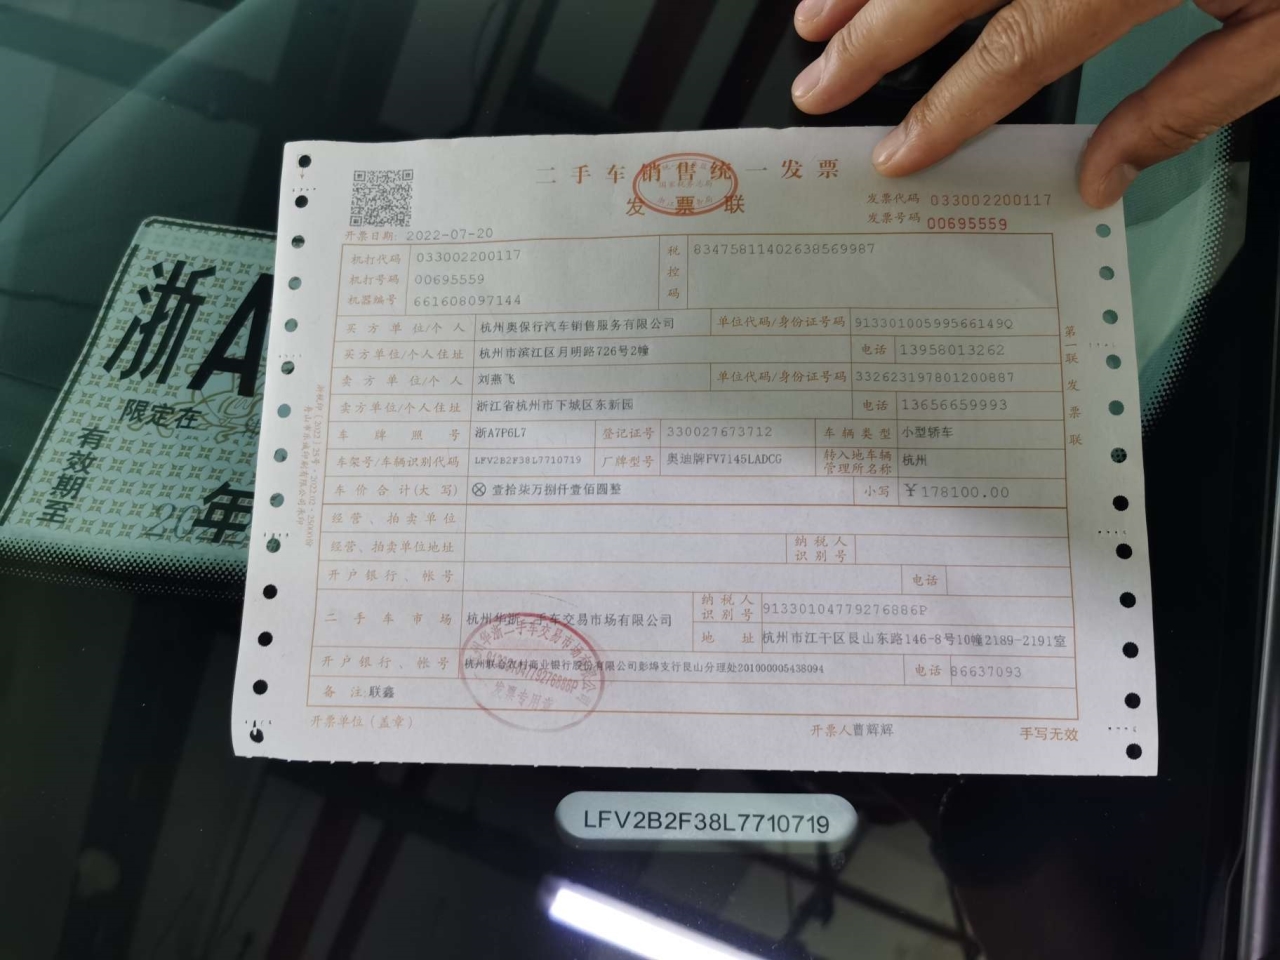 二手车销售统一发票
发票联
发票代码 033002200117
发票号码 00695559
开票日期: 2022-07-20
机打代码 033002200117
机打号码 00695559
机器编号 661608097144
税控码 83475811402638569987
买方单位/个人 杭州奥保行汽车销售服务有限公司 单位代码/身份证号码 91330100599566149Q
买方单位/个人住址 杭州市滨江区月明路726号2幢 电话 13958013262
卖方单位/个人 刘燕飞 单位代码/身份证号码 332623197801200887
卖方单位/个人住址 浙江省杭州市下城区东新园 电话 13656659993
车牌照号 浙A7P6L7 登记证号 330027673712 车辆类型 小型轿车
车架号/车辆识别代码 LFV2B2F38L7710719 厂牌型号 奥迪牌FV7145LADCG 转入地车辆管理所名称 杭州
车价合计(大写) ⊗ 壹拾柒万捌仟壹佰圆整 小写 ¥178100.00
经营、拍卖单位
经营、拍卖单位地址 纳税人识别号
开户银行、帐号 电话
二手车市场 杭州华浙二手车交易市场有限公司 纳税人识别号 91330104779276886P
地址 杭州市江干区艮山东路146-8号10幢2189-2191室
开户银行、帐号 杭州联合农村商业银行股份有限公司彭埠支行艮山分理处201000005438094 电话 86637093
备注: 联鑫
开票单位(盖章) 开票人 曹辉辉 手写无效
第一联 发票联
发票专用章
浙A
限定在
有效期至
年
LFV2B2F38L7710719